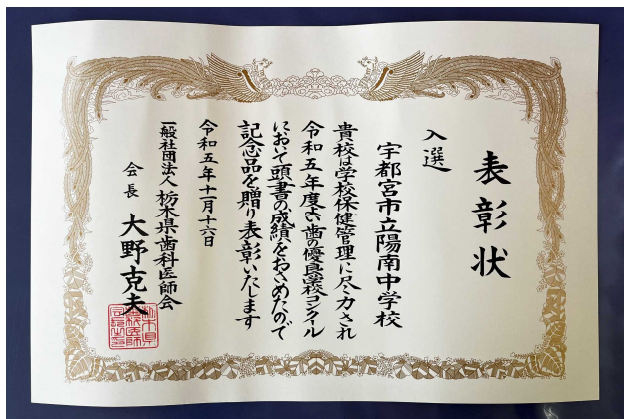 表彰状
入選
宇都宮市立陽南中学校
貴校は学校保健管理に尽力され
令和五年度よい歯の優良学校コンクール
において頭書の成績をおさめたので
記念品を贈り表彰いたします
令和五年十一月十六日
一般社団法人 栃木県歯科医師会
会長 大野克夫